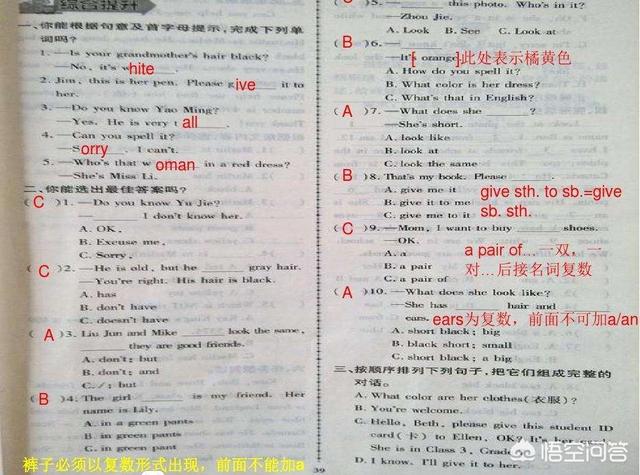 综合提升
一、你能根据句意及首字母提示,完成下列单
词吗?
1. —Is your grandmother's hair black?
—No, it's white.
2. Jim, this is her pen. Please give it to
her.
3. —Do you know Yao Ming?
—Yes. He is very tall.
4. —Can you spell it?
—Sorry. I can't.
5. —Who's that woman in a red dress?
—She's Miss Li.
二、你能选出最佳答案吗?
( C )1. —Do you know Yu Jie?
—______ I don't know her.
A. OK,
B. Excuse me,
C. Sorry,
( C )2. —He is old, but he ______ gray hair.
—You're right. His hair is black.
A. has
B. don't have
C. doesn't have
( A )3. Liu Jun and Mike ______ look the same,
______ they are good friends.
A. don't; but
B. don't; and
C. /; but
( B )4. The girl ______ is my friend. Her
name is Lily.
A. in a green pants
B. in green pants
C. in green pant
裤子必须以复数形式出现，前面不能加a
39
( )5. —______ this photo. Who's in it?
—Zhou Jie.
A. Look B. See C. Look at
( B )6. —______
—It's orange. 此处表示橘黄色
A. How do you spell it?
B. What color is her dress?
C. What's that in English?
( A )7. —What does she ______?
—She's short.
A. look like
B. look at
C. look the same
( B )8. That's my book. Please ______.
A. give me it
B. give it to me
C. give me to it
give sth. to sb.=give
sb. sth.
( C )9. —Mom, I want to buy ______ shoes.
—OK.
A. a
B. a pair
C. a pair of
a pair of...一双，一
对...后接名词复数
( A )10. —What does she look like?
—She has ______ hair and ______
ears.
ears为复数，前面不可加a/an
A. short black; big
B. black short; small
C. short black; a big
三、按顺序排列下列句子,把它们组成完整的
对话。
A. What color are her clothes(衣服)?
B. You're welcome.
C. Hello, Beth, please give this student ID
card(卡) to Ellen, OK? It's her card.
She is in Class 3, Grade
D. I know. I'll give it to her.
悟空问答